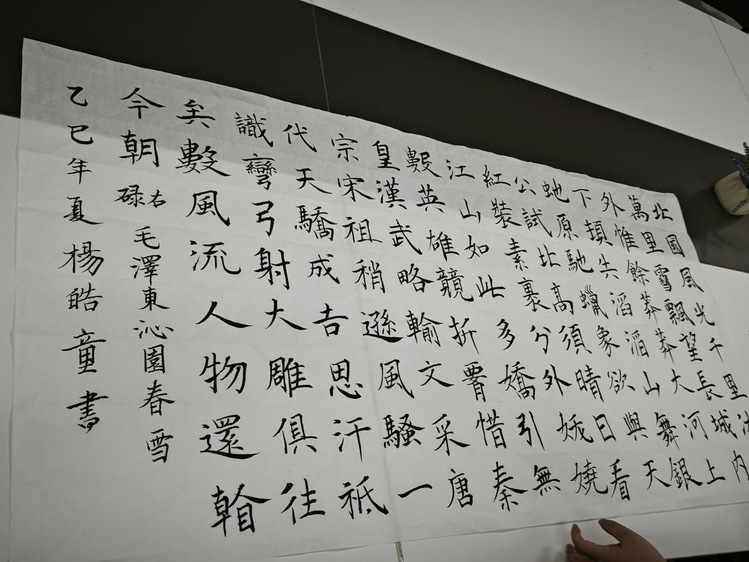 北國風光千里
萬里雪飄望長城內
外惟餘莽莽大河上
下頓失滔滔山舞銀
虵原馳蠟象欲與天
公試比高須晴日看
紅裝素裹分外嬈
江山如此多嬌引無
數英雄競折惜秦
皇漢武略輸文采唐
宗宋祖稍遜風騷一
代天驕成吉思汗祗
識彎弓射大雕俱往
矣數風流人物還
今朝
右碌毛澤東沁園春雪
乙巳年夏楊皓童書